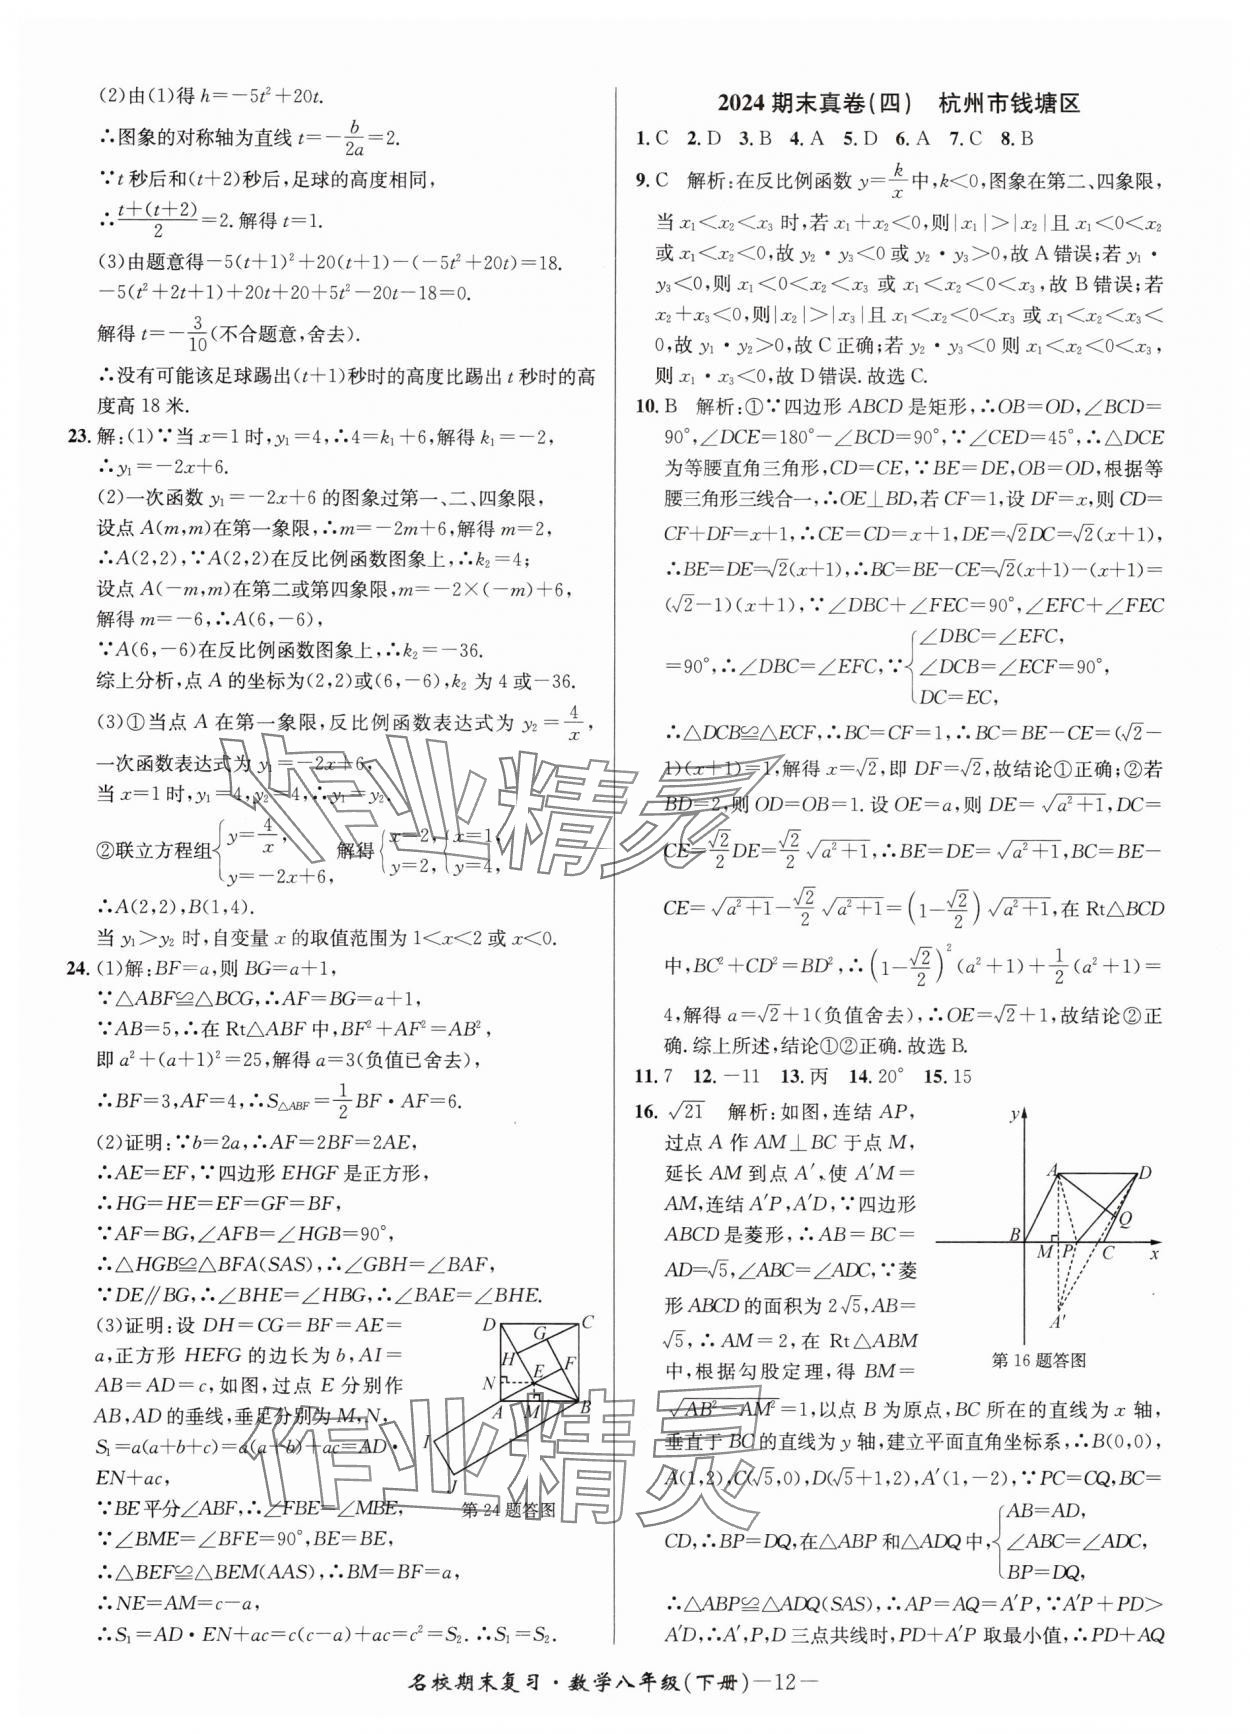 (2)由(1)得 h=-5t²+20t.
∴图象的对称轴为直线 t=-b/2a=2.
∵t 秒后和(t+2)秒后,足球的高度相同,
∴(t+(t+2))/2=2. 解得 t=1.
(3)由题意得-5(t+1)²+20(t+1)-(-5t²+20t)=18.
-5(t²+2t+1)+20t+20+5t²-20t-18=0.
解得 t=-3/10(不合题意,舍去).
∴没有可能该足球踢出(t+1)秒时的高度比踢出 t 秒时的高
度高 18 米.
23. 解:(1)∵当 x=1 时,y₁=4,∴4=k₁+6,解得 k₁=-2,
∴y₁=-2x+6.
(2)一次函数 y₁=-2x+6 的图象过第一、二、四象限,
设点 A(m,m)在第一象限,∴m=-2m+6,解得 m=2,
∴A(2,2),∵A(2,2)在反比例函数图象上,∴k₂=4;
设点 A(-m,m)在第二或第四象限,m=-2×(-m)+6,
解得 m=-6,∴A(6,-6),
∵A(6,-6)在反比例函数图象上,∴k₂=-36.
综上分析,点 A 的坐标为(2,2)或(6,-6),k₂ 为 4 或-36.
(3)①当点 A 在第一象限,反比例函数表达式为 y₂=4/x,
一次函数表达式为 y₁=-2x+6,
当 x=1 时,y₁=4,y₂=4,∴y₁=y₂.
②联立方程组{y=4/x, y=-2x+6, 解得{x=2, y=2, {x=1, y=4,
∴A(2,2),B(1,4).
当 y₁>y₂ 时,自变量 x 的取值范围为 1<x<2 或 x<0.
24. (1)解:BF=a,则 BG=a+1,
∵△ABF≌△BCG,∴AF=BG=a+1,
∵AB=5,∴在 Rt△ABF 中,BF²+AF²=AB²,
即 a²+(a+1)²=25,解得 a=3(负值已舍去),
∴BF=3,AF=4,∴S△ABF=1/2BF·AF=6.
(2)证明:∵b=2a,∴AF=2BF=2AE,
∴AE=EF,∵四边形 EHGF 是正方形,
∴HG=HE=EF=GF=BF,
∵AF=BG,∠AFB=∠HGB=90°,
∴△HGB≌△BFA(SAS),∴∠GBH=∠BAF,
∵DE∥BG,∴∠BHE=∠HBG,∴∠BAE=∠BHE.
(3)证明:设 DH=CG=BF=AE=
a,正方形 HEFG 的边长为 b,AI=
AB=AD=c,如图,过点 E 分别作
AB,AD 的垂线,垂足分别为 M,N,
S₁=a(a+b+c)=a(a+b)+ac=AD·
EN+ac,
∵BE 平分∠ABF,∴∠FBE=∠MBE,
∵∠BME=∠BFE=90°,BE=BE,
∴△BEF≌△BEM(AAS),∴BM=BF=a,
∴NE=AM=c-a,
∴S₁=AD·EN+ac=c(c-a)+ac=c²=S₂. ∴S₁=S₂.
D
C
G
H
E
F
N
A
M
B
I
J
第 24 题答图
2024 期末真卷(四) 杭州市钱塘区
1. C 2. D 3. B 4. A 5. D 6. A 7. C 8. B
9. C 解析:在反比例函数 y=k/x中,k<0,图象在第二、四象限,
当 x₁<x₂<x₃ 时,若 x₁+x₂<0,则|x₁|>|x₂|且 x₁<0<x₂
或 x₁<x₂<0,故 y₂·y₃<0 或 y₂·y₃>0,故 A 错误;若 y₁·
y₃<0,则 x₁<0<x₂<x₃ 或 x₁<x₂<0<x₃,故 B 错误;若
x₂+x₃<0,则|x₂|>|x₃|且 x₁<x₂<0<x₃ 或 x₁<x₂<x₃<
0,故 y₁·y₂>0,故 C 正确;若 y₂·y₃<0 则 x₁<x₂<0<x₃,
则 x₁·x₃<0,故 D 错误.故选 C.
10. B 解析:①∵四边形 ABCD 是矩形,∴OB=OD,∠BCD=
90°,∠DCE=180°-∠BCD=90°,∵∠CED=45°,∴△DCE
为等腰直角三角形,CD=CE,∵BE=DE,OB=OD,根据等
腰三角形三线合一,∴OE⊥BD,若 CF=1,设 DF=x,则 CD=
CF+DF=x+1,∴CE=CD=x+1,DE=√2DC=√2(x+1),
∴BE=DE=√2(x+1),∴BC=BE-CE=√2(x+1)-(x+1)=
(√2-1)(x+1),∵∠DBC+∠FEC=90°,∠EFC+∠FEC
=90°,∴∠DBC=∠EFC,∵{∠DBC=∠EFC, ∠DCB=∠ECF=90°, DC=EC,
∴△DCB≌△ECF,∴BC=CF=1,∴BC=BE-CE=(√2-
1)(x+1)=1,解得 x=√2,即 DF=√2,故结论①正确;②若
BD=2,则 OD=OB=1. 设 OE=a,则 DE=√(a²+1),DC=
CE=√2/2DE=√2/2√(a²+1),∴BE=DE=√(a²+1),BC=BE-
CE=√(a²+1)-√2/2√(a²+1)=(1-√2/2)√(a²+1),在 Rt△BCD
中,BC²+CD²=BD²,∴(1-√2/2)²(a²+1)+1/2(a²+1)=
4,解得 a=√2+1(负值舍去),∴OE=√2+1,故结论②正
确.综上所述,结论①②正确.故选 B.
11. 7 12. -11 13. 丙 14. 20° 15. 15
16. √21 解析:如图,连结 AP,
过点 A 作 AM⊥BC 于点 M,
延长 AM 到点 A′,使 A′M=
AM,连结 A′P,A′D,∵四边形
ABCD 是菱形,∴AB=BC=
AD=√5,∠ABC=∠ADC,∵菱
形 ABCD 的面积为 2√5,AB=
√5,∴AM=2,在 Rt△ABM
中,根据勾股定理,得 BM=
√(AB²-AM²)=1,以点 B 为原点,BC 所在的直线为 x 轴,
垂直于 BC 的直线为 y 轴,建立平面直角坐标系,∴B(0,0),
A(1,2),C(√5,0),D(√5+1,2),A′(1,-2),∵PC=CQ,BC=
CD,∴BP=DQ,在△ABP 和△ADQ 中,{AB=AD, ∠ABC=∠ADC, BP=DQ,
∴△ABP≌△ADQ(SAS),∴AP=AQ=A′P,∵A′P+PD>
A′D,∴A′,P,D 三点共线时,PD+A′P 取最小值,∴PD+AQ
y
A
D
Q
B
M
P
C
x
A′
第 16 题答图
名校期末复习·数学八年级(下册)-12-
作业精灵
作业精灵